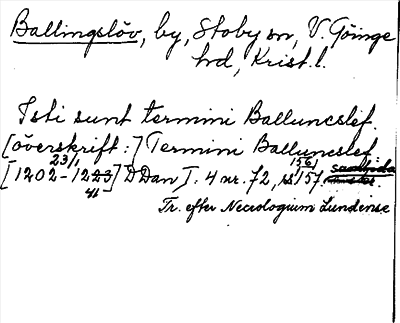 Ballingslöv, by, Stoby sn, V. Göinge
hd, Krist. l.
Isti sunt termini Balluncslef.
[överskrift:] Termini Balluncslef
[1202-1223] DDan I. 4 nr. 72, s 157.
23/1
41
156
samtida
Tr. efter Necrologium Lundense